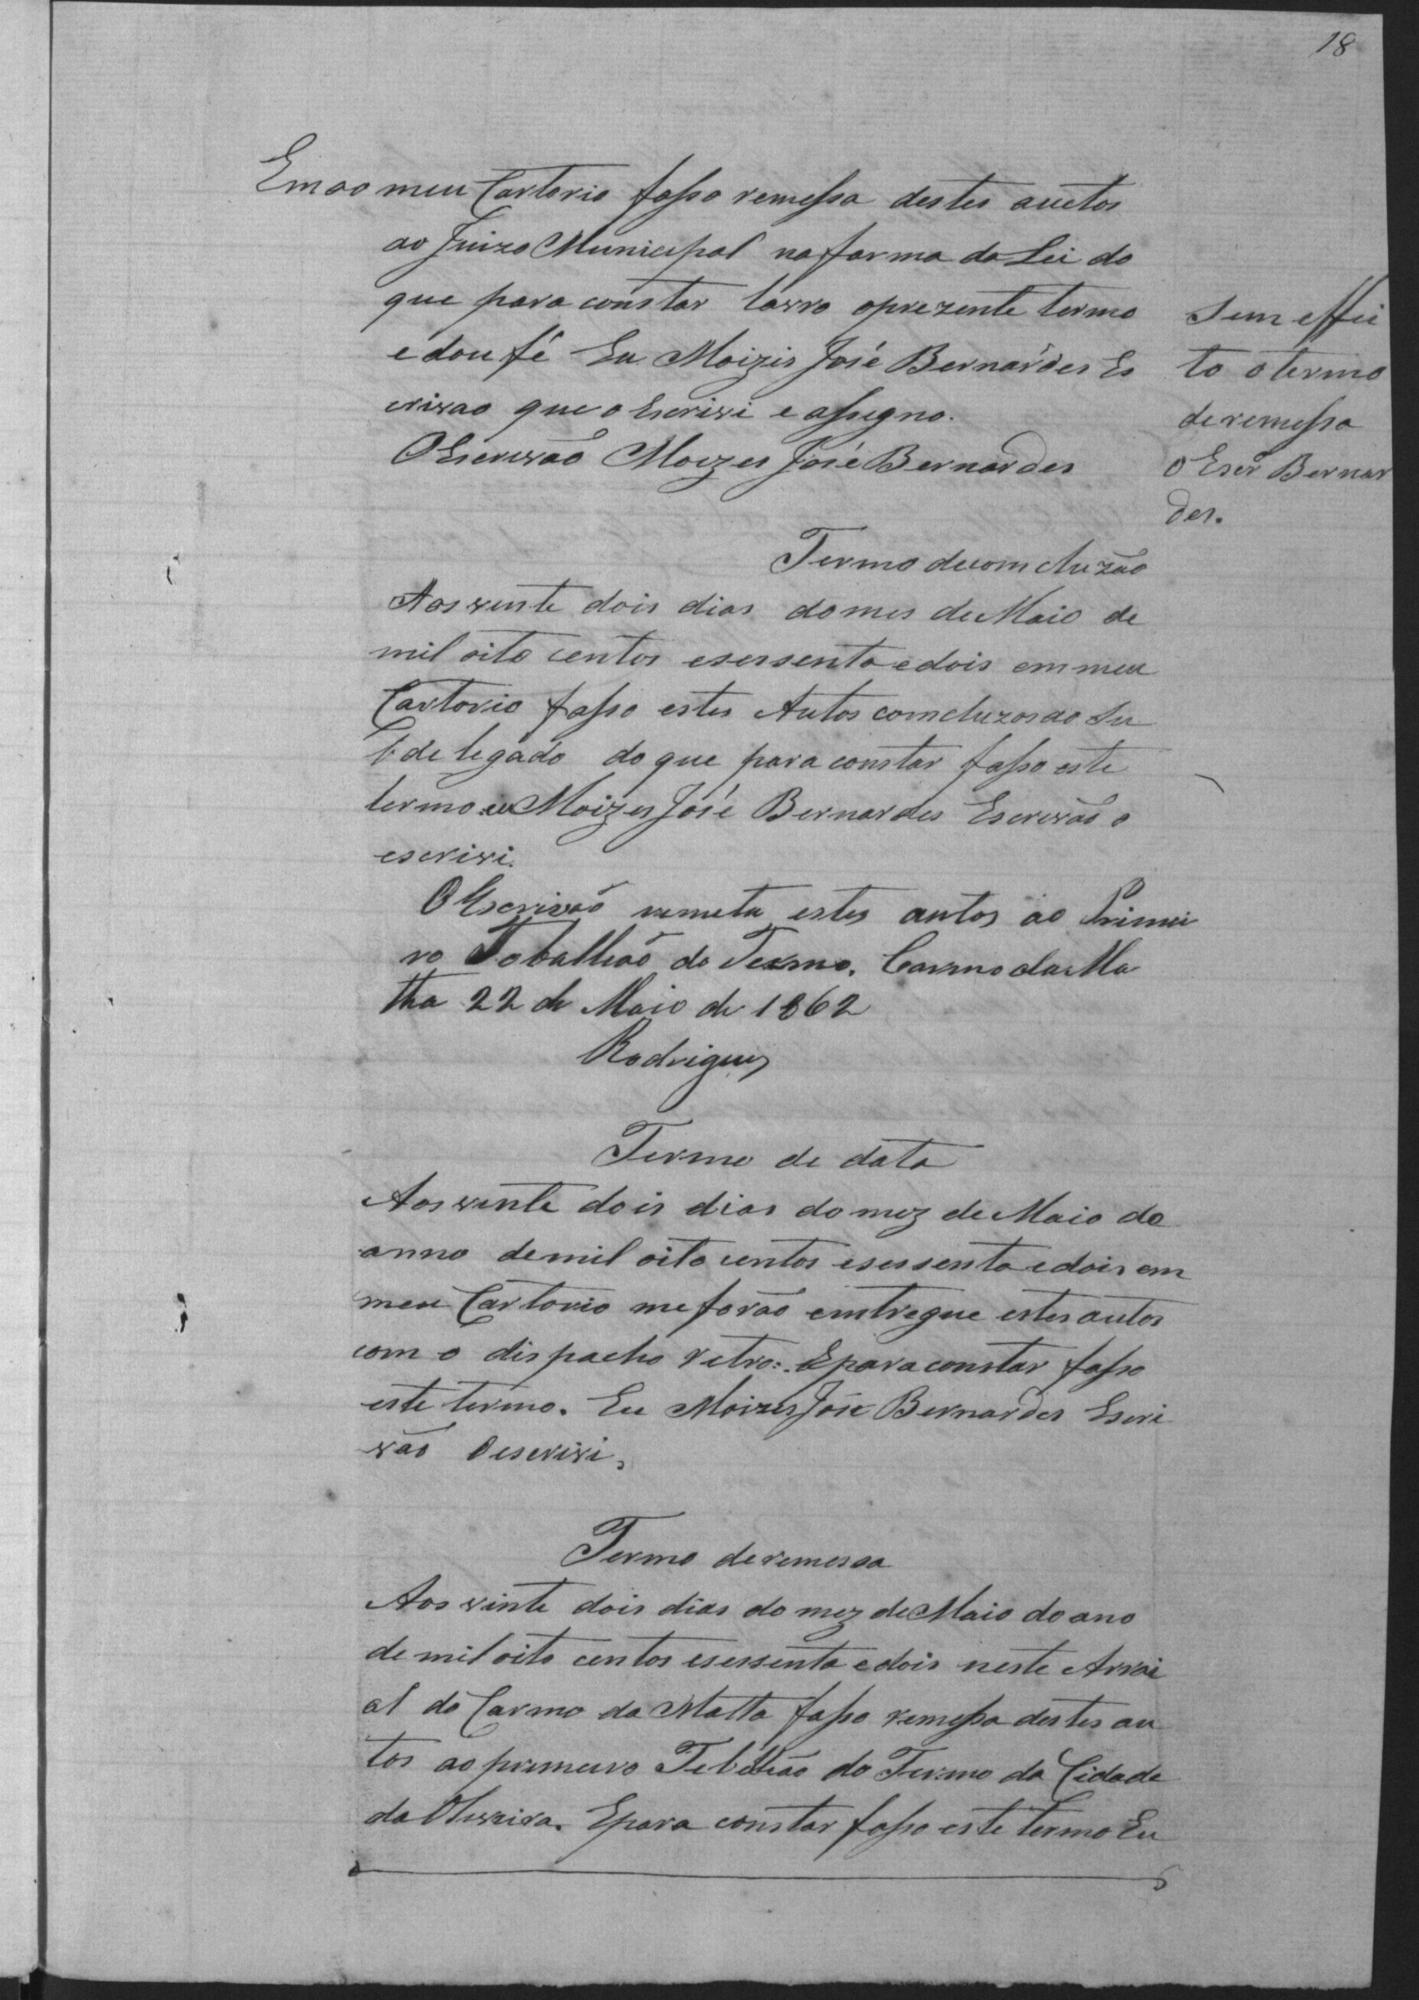 18
Em ao meu Cartorio fasso remessa destes auctos
ao Juizo Municipal na forma da Lei do
que para constar lavro o prezente termo
e dou fé Eu Moizes José Bernardes Es
crivao que o Escrivi e assegno.
O Escrivão Moizes José Bernardes
Sem effei
to o termo
de remessa
o Escr Bernar
des.
Termo de comcluzão
Aos vente dois dias do mes de Maio de
mil oito centos e sessenta e dois em meu
Cartorio fasso estes Autos comcluzos ao Su
b de legado do que para constar fasso este
termo eu Moizes José Bernardes Escrivão o
escrivi.
O Escrivão remeta estes autos ao Primei
ro Taballião do Termo. Carmo da Ma
tta 22 de Maio de 1862
Rodrigues
Termo de data
Aos vente dois dias do mez de Maio do
anno de mil oito centos e sessenta e dois em
meu Cartorio me forão emtregue estes autos
com o dispacho retro. E para constar fasso
este termo. Eu Moizes José Bernardes Escri
vão O escrivi.
Termo de remessa
Aos vinte dois dias do mez de Maio do ano
de mil oito centos e sessenta e dois neste Arrai
al do Carmo da Matta fasso remessa destes au
tos ao primeiro Tebelião do Termo da Cidade
da Oliveira. E para constar fasso este termo Eu